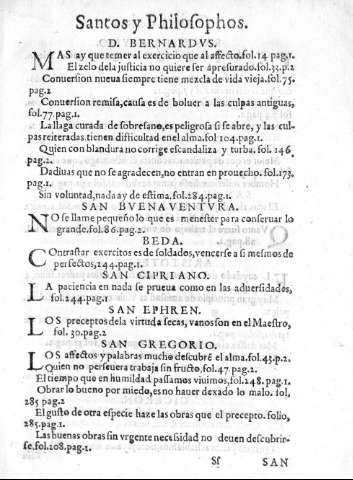 Santos y Philosophos.
D. BERNARDVS.
MAS ay que temer al exercicio que al affecto.fol.14.pag,1.
El zelo dela justicia no quiere ser apresurado.fol.33.p.2
Conuersion nueua siempre tiene mezcla de vida vieja.fol.75.
pag.2
Conuersion remisa,causa es de boluer a las culpas antiguas,
fol.77.pag.1.
La llaga curada de sobresano,es peligrosa si se abre, y las cul-
pas reiteradas.tienen difficultad en el alma.fol 104.pag.1.
Quien con blandura no corrige escandaliza y turba. fol. 146
pag.2.
Dadiuas que no se agradecen,no entran en prouecho. fol.173.
pag.1.
Sin voluntad,nada ay de estima.fol.284.pag.1.
SAN BUENAVENTVRA.
NO se llame pequeño lo que es menester para conseruar lo
grande.fol.86.pag.2.
BEDA.
COntrastar exercitos es de soldados,vencerse a si mesmos de
perfectos,144.pag.1.
SAN CIPRIANO.
LA paciencia en nada se prueua como en las aduersidades,
fol.244.pag.1
SAN EPHREN.
LOS preceptos dela virtud a secas, vanos son en el Maestro,
fol. 30.pag.2
SAN GREGORIO.
LOS affectos y palabras mucho descubrē el alma.fol.43.p.2.
Quien no perseuera trabaja sin fructo.fol.47.pag.2.
El tiempo que en humildad passamos viuimos,fol.248. pag.1.
Obrar lo bueno por miedo,es no hauer dexado lo malo. fol,
285 pag.2
El gusto de otra especie haze las obras que el precepto. folio,
285.pag.1.
Las buenas obras sin vrgente necssidad no deuen descubrir-
se.fol.208.pag.1.
Sf SAN